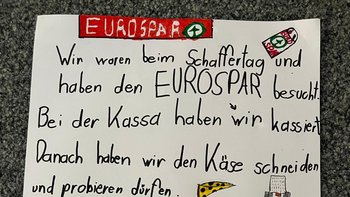 EUROSPAR
Wir waren beim Schaffertag und
haben den EUROSPAR besucht.
Bei der Kassa haben wir kassiert
Danach haben wir den Käse schneiden
und probieren dürfen.